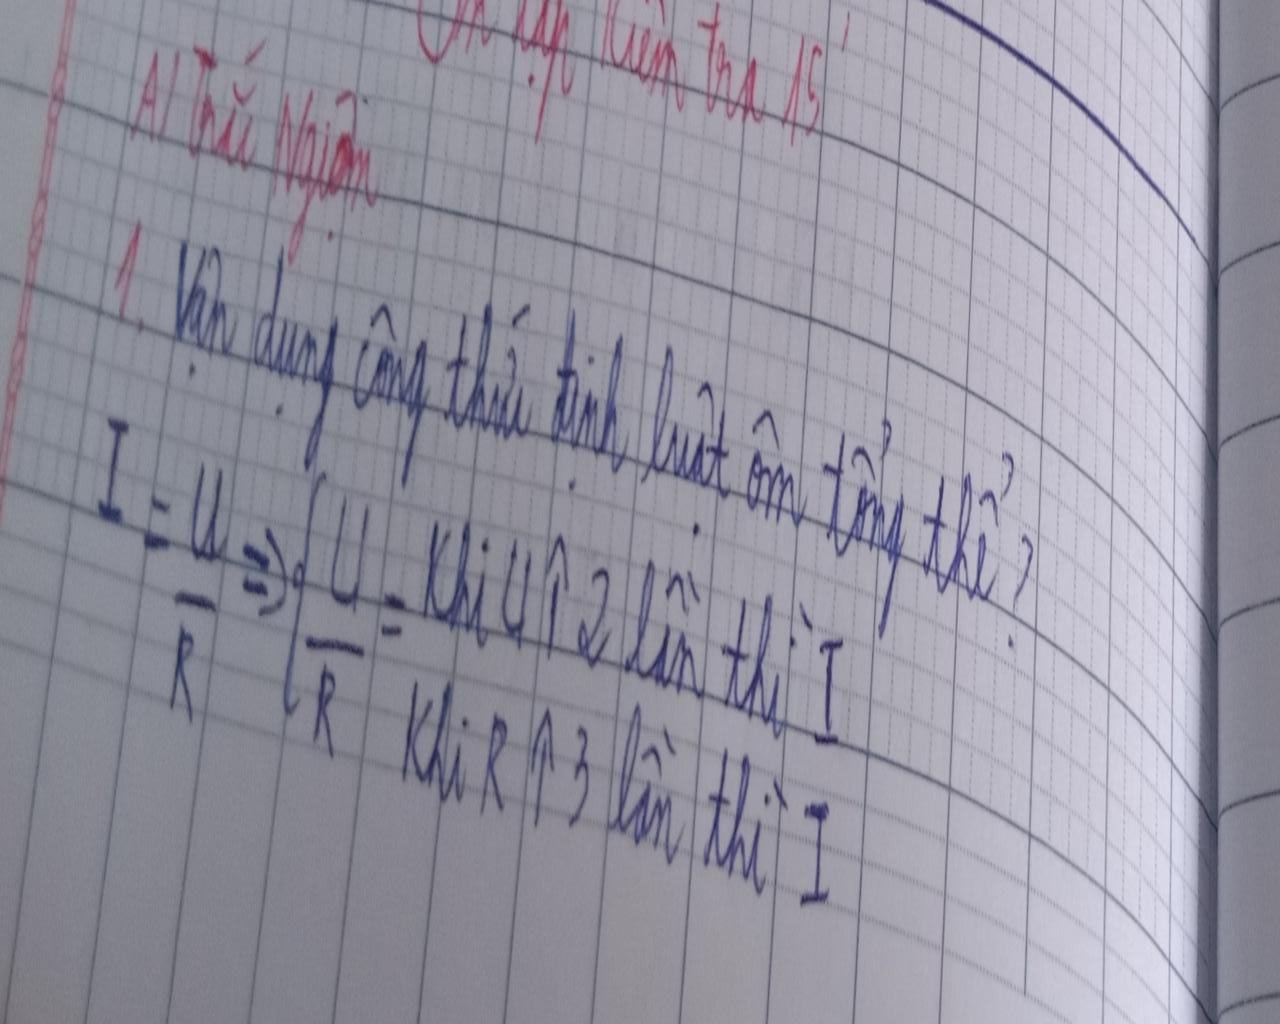 Ôn tập kiểm tra 15'
A/ Trắc Nghiệm
1. Vận dụng công thức định luật ôm tổng thể?
I = U/R => { U/R = Khi U ↑ 2 lần thì I
Khi R ↑ 3 lần thì I